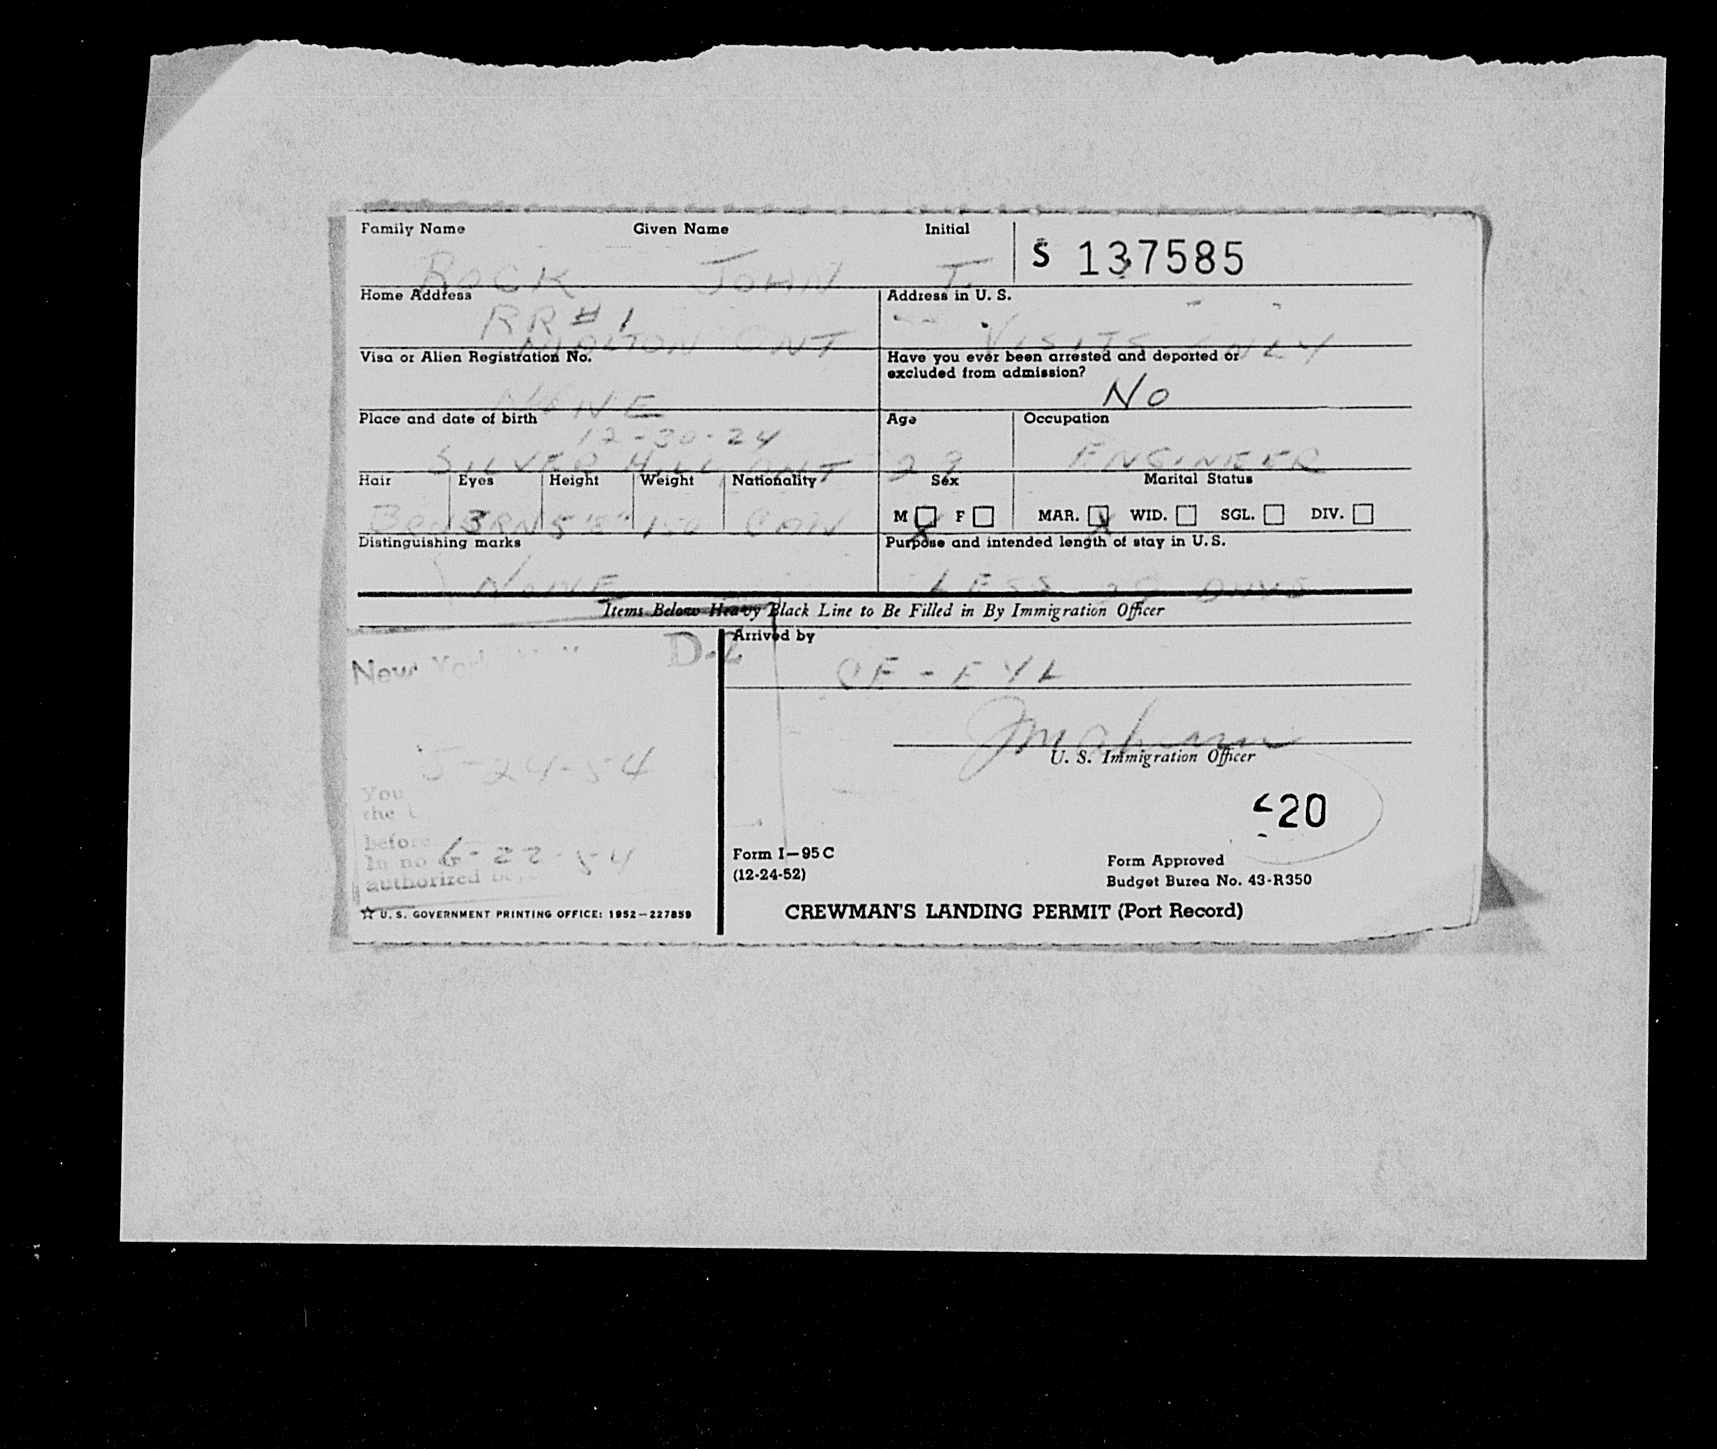 Family Name Given Name Initial
S 137585
ROCK JOHN T.
Home Address Address in U. S.
RR #1
MALTON ONT VISITS ONLY
Visa or Alien Registration No. Have you ever been arrested and deported or
excluded from admission?
NONE No
Place and date of birth Age Occupation
12-30-24
SILVER HILL ONT 29 ENGINEER
Hair Eyes Height Weight Nationality Sex Marital Status
BRN BRN 5'8" 150 CAN M F MAR. WID. SGL. DIV.
Distinguishing marks Purpose and intended length of stay in U. S.
NONE LESS 29 DAYS
Items Below Heavy Black Line to Be Filled in By Immigration Officer
Arrived by
New York D-2
CF-EYL
U. S. Immigration Officer
5-24-54
You
the
before 6-22-54
In no
authorized
20
Form I-95 C
(12-24-52)
Form Approved
Budget Burea No. 43-R350
☆ U. S. GOVERNMENT PRINTING OFFICE: 1952-227859
CREWMAN'S LANDING PERMIT (Port Record)